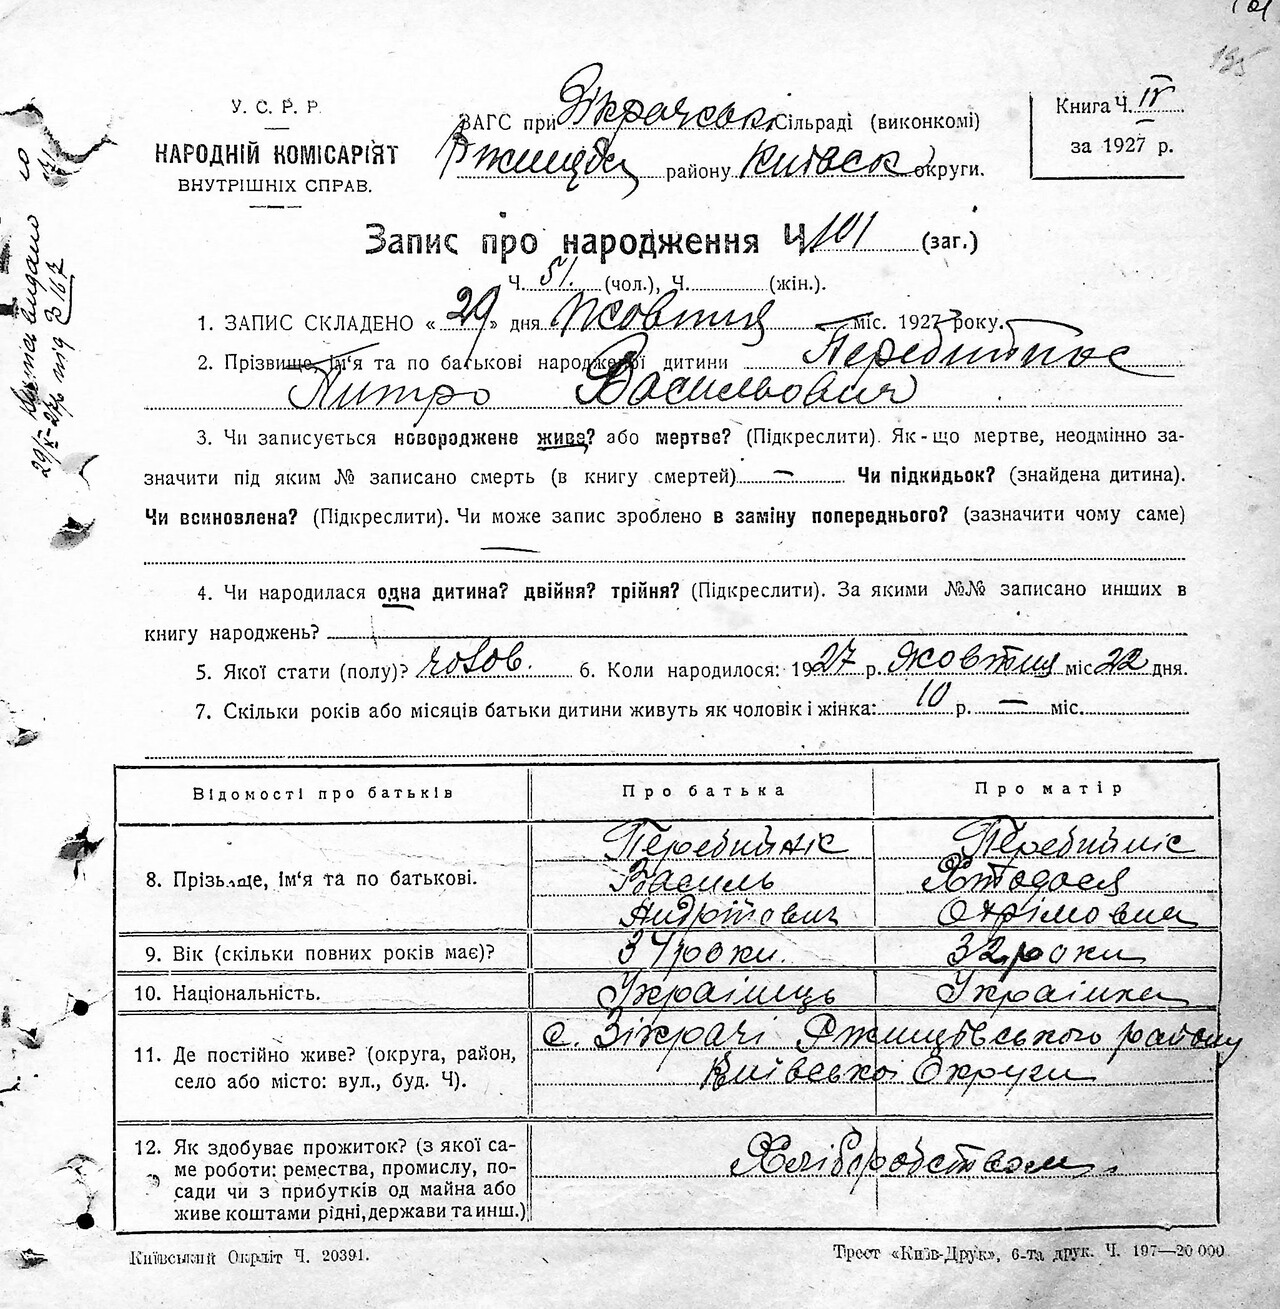 195
У. С. Р. Р.
НАРОДНІЙ КОМІСАРІЯТ
ВНУТРІШНІХ СПРАВ.
ЗАГС при Зікрачські Сільраді (виконкомі)
району Київськ округи.
Книга Ч. IV
за 1927 р.
Запис про народження Ч. 101 (заг.)
Ч. 51. (чол.), Ч. (жін.).
1. ЗАПИС СКЛАДЕНО « 29 » дня Жовтня міс. 1927 року.
2. Прізвище, ім'я та по батькові народженої дитини Перебийніс
Дмитро Васильович
3. Чи записується новороджене живе? або мертве? (Підкреслити). Як-що мертве, неодмінно за-
значити під яким № записано смерть (в книгу смертей) — Чи підкидьок? (знайдена дитина).
Чи всиновлена? (Підкреслити). Чи може запис зроблено в заміну попереднього? (зазначити чому саме)
—
4. Чи народилася одна дитина? двійня? трійня? (Підкреслити). За якими №№ записано инших в
книгу народжень?
5. Якої стати (полу)? чолов. 6. Коли народилося: 1927 р. Жовтня міс 22 дня.
7. Скільки років або місяців батьки дитини живуть як чоловік і жінка: 10 р. — міс.
Відомості про батьків Про батька Про матір
8. Прізьвще, Ім'я та по батькові.
Перебийніс Перебийніс
Василь Явтодося
Андрійович Охрімовна
9. Вік (скільки повних років має)? 34 роки. 32 роки
10. Національність. Українець Українка
11. Де постійно живе? (округа, район,
село або місто: вул., буд. Ч).
с. Зікрачі Ржищівського району
Київської Округи
12. Як здобуває прожиток? (з якої са-
ме роботи: ремества, промислу, по-
сади чи з прибутків од майна або
живе коштами рідні, держави та инш.)
Хліборобством.
Київський Окрліт Ч. 20391.
Трест «Київ-Друк», 6-та друк. Ч. 197—20 000